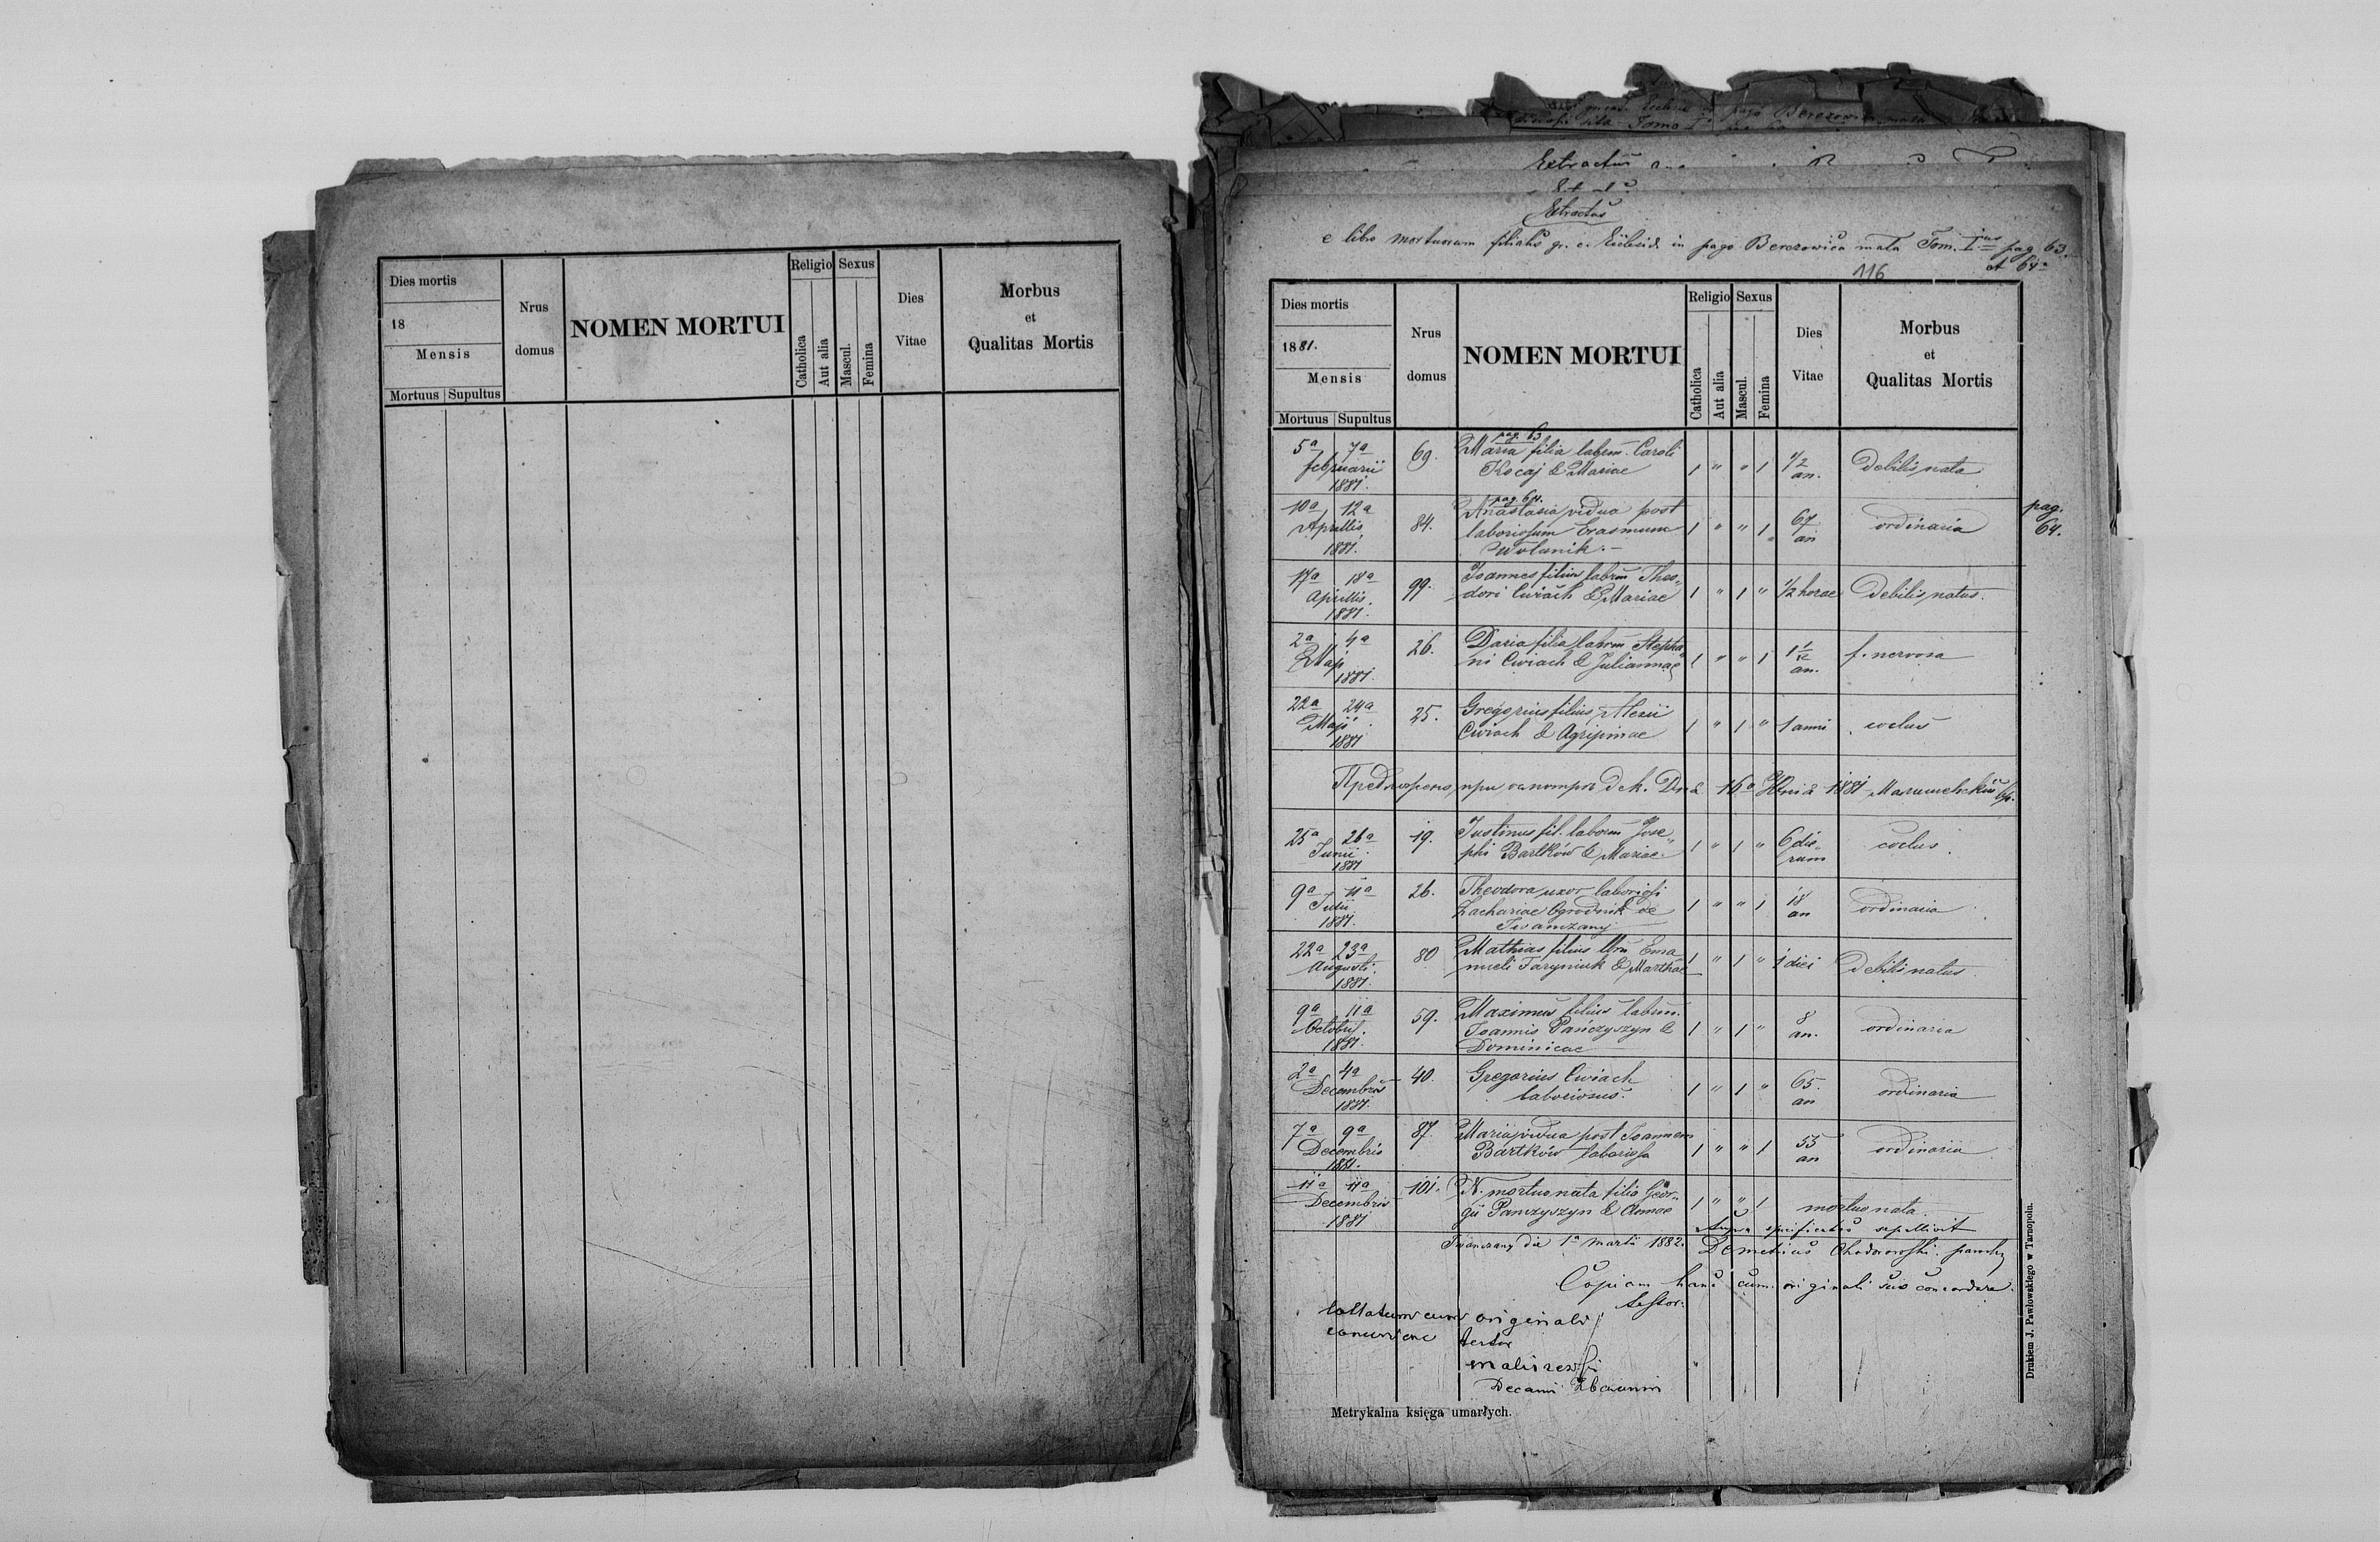 Dies mortis
18
Mensis
Mortuus Supultus
Nrus
domus
NOMEN MORTUI
Religio
Catholica
Aut alia
Sexus
Mascul.
Femina
Dies
Vitae
Morbus
et
Qualitas Mortis
Extractus
Extractus
e libro mortuorum filialis gr. c. Ecclesiae in pago Berezowica mała Tom. I pag 63.
et 64
116
Dies mortis
1881.
Mensis
Mortuus Supultus
Nrus
domus
NOMEN MORTUI
Religio
Catholica
Aut alia
Sexus
Mascul.
Femina
Dies
Vitae
Morbus
et
Qualitas Mortis
pag. 63
5a 7a 69. Maria filia labrm. Caroli
februarii Kocaj & Mariae 1 " " 1 1/2 an. Debilis nata
1881.
pag. 64.
10a 12a 84. Anastasia vidua post
Aprillis laboriosum Erasmum 1 " " 1 67 an ordinaria
1881. Wołanik. –
pag.
64.
17a 18a 99. Joannes filius labrm Theo„
Aprillis dori Cwiach & Mariae 1 " 1 " 1/2 horae Debilis natus.
1881.
2a 4a 26. Daria filia labrm Stepha„
Maji ni Cwiach & Juliannae 1 " " 1 an. f. nervosa
1881.
22a 24a 25. Gregorius filius Alexii
Maji Cwiach & Agripinae 1 " 1 " 1 anni coclus
1881
16a 1881
25a 26a 19. Justinus fil. laborm Jose„
Junii phi Bartków & Mariae. 1 " 1 " 6 die„rum coclus.
1881
9a 11a 26. Theodora uxor laboriosi
Julii Zachariae Ogrodnik de 1 " " 1 18 an ordinaria
1881. Iwanczany
22a 23a 80 Mathias filius lbrm Ema
Augusti nueli Taryniuk & Marthae 1 " 1 " 1 diei Debilis natus.
1881.
9a 11a 59. Maximus filius labrm.
Octobris Joannis Pańczyszyn & 1 " 1 " 8 an. ordinaria
1881. Dominicae
2a 4a 40. Gregorius Cwiach
Decembris laboriosus. 1 " 1 " 65. an ordinaria
1881.
7a 9a 87. Maria vidua post Joannem
Decembris Bartków laboriosa 1 " " 1 55 an ordinaria
1881.
11a 11a 101. N. mortuo nata filia Geor„
Decembris gii Panczyszyn & Annae 1 " " 1 mortuo nata.
1881
Supra specificatos sepellivit
Iwanczany die 1a Martii 1882. Demetrius Chodorowski. paroch
Copiam hanc cum originali suo concordare
testor.
Collatum cum originali
testor
Decani
Metrykalna księga umarłych.
Drukiem J. Pawłowskiego w Tarnopolu.